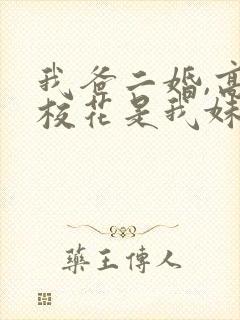 我爸二婚,高
校花是我妹
藥王傳人